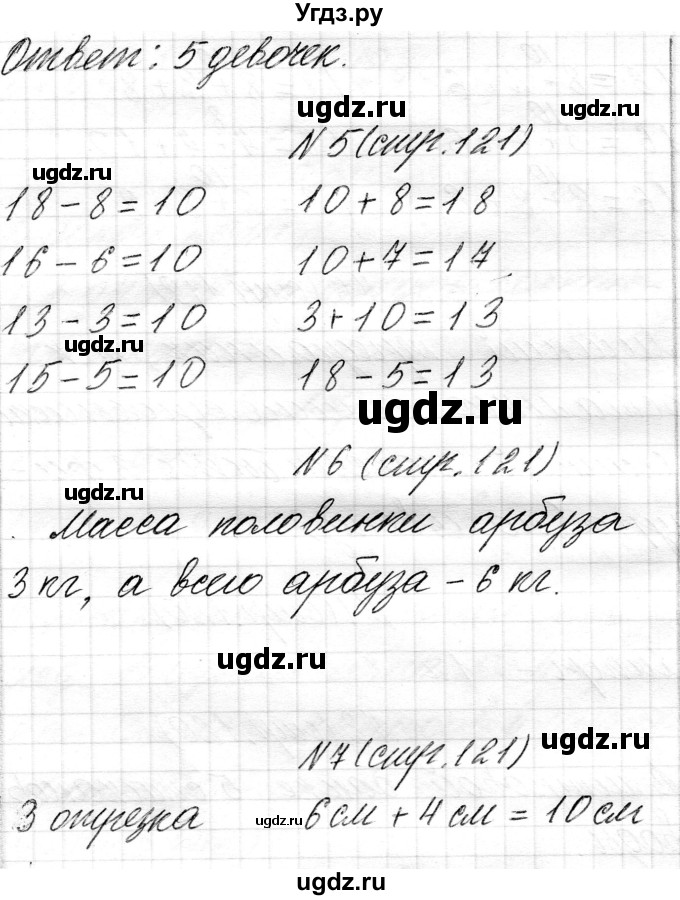 Угдз.ру
Ответ: 5 девочек.
ugdz.ru ugdz.ru
N 5 (стр. 121)
ugdz.ru
18 - 8 = 10 10 + 8 = 18
16 - 6 = 10 10 + 7 = 17
13 - 3 = 10 3 + 10 = 13
ugdz.ru
15 - 5 = 10 18 - 5 = 13
ugdz.ru
N 6 (стр. 121)
ugdz.ru
Масса половинки арбуза
3 кг, а всего арбуза - 6 кг.
ugdz.ru
N 7 (стр. 121)
ugdz.ru
3 отрезка 6 см + 4 см = 10 см
ugdz.ru
ugdz.ru